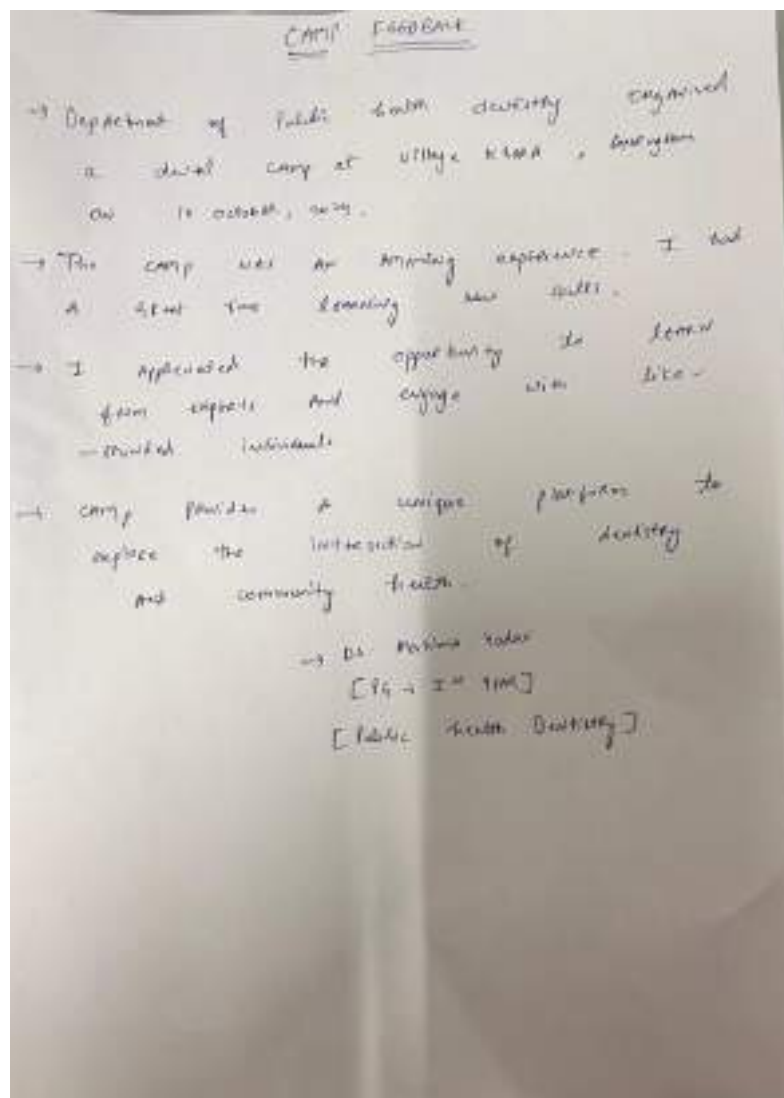 CAMP FEEDBACK
→ Department of Public health dentistry organised
a dental camp at village
on 10 october, 2024.
→ The camp was an amazing experience. I had
a great time learning new skills.
→ I appreciated the opportunity to learn
from experts and engage with like-
-minded individuals
→ camp provides a unique platform to
explore the intersection of dentistry
and community health.
→ Dr.
[PG → Ist year]
[Public health Dentistry]